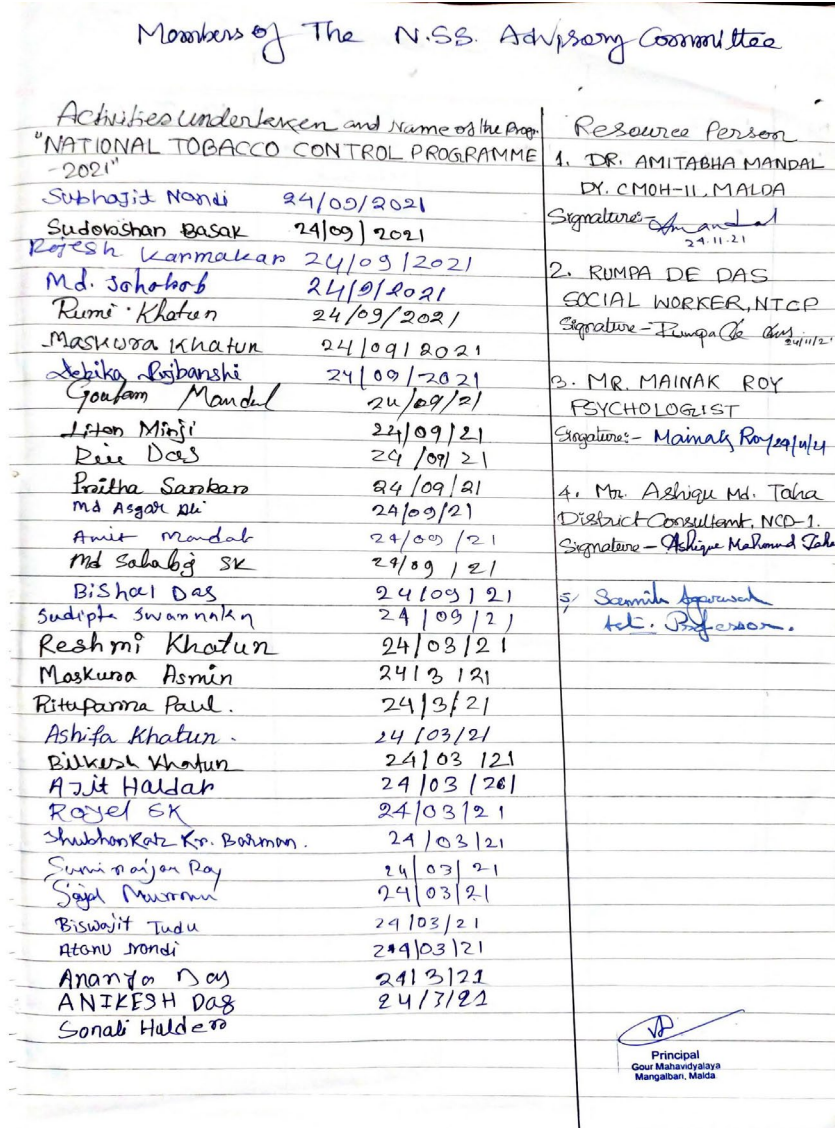 Members of The N.S.S. Advisory Committee
Activities Undertaken and Name of the Prog.
"NATIONAL TOBACCO CONTROL PROGRAMME
-2021"
Subhajit Nandi 24/09/2021
Sudarshan Basak 24/09/2021
Rajesh Karmakar 24/09/2021
Md. 24/9/2021
Rumi Khatun 24/09/2021
Maskura Khatun 24/09/2021
Debika Rajbanshi 24/09/2021
Goutam Mandal 24/09/21
Liton Minji 24/09/21
Das 24/09/21
Pritha Sarkar 24/09/21
Md Asgar Ali 24/09/21
Amit Mandal 24/09/21
Md SK 24/09/21
Bishal Das 24/09/21
Sudipta 24/09/21
Reshmi Khatun 24/03/21
Maskura Asmin 24/3/21
Rituparna Paul. 24/3/21
Ashifa Khatun. 24/03/21
Bilkesh Khatun 24/03/21
Ajit Haldar 24/03/
Royel SK 24/03/21
Kr. Barman. 24/03/21
Roy 24/03/21
Murmu 24/03/21
Biswajit Tudu 24/03/21
Atanu Nandi 24/03/21
Ananya Das 24/3/21
ANIKESH Das 24/3/21
Sonali
Resource Person
1. DR. AMITABHA MANDAL
DY. CMOH-II, MALDA
Signature:-
24.11.21
2. RUMPA DE DAS
SOCIAL WORKER, NTCP
Signature - Rumpa De Das
3. MR. MAINAK ROY
PSYCHOLOGIST
Signature:- Mainak Roy
4. Mr. Ashique Md. Taha
District Consultant, NCD-1.
Signature - Ashique Mahamud Taha
5/ Agarwal
Professor.
Principal
Gour Mahavidyalaya
Mangalbari, Malda